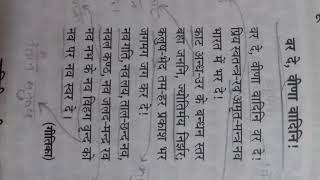 वर दे, वीणा वादिनि !
वर दे, वीणा वादिनि वर दे !
प्रिय स्वतन्त्र-रव अमृत-मन्त्र नव
भारत में भर दे !
काट अन्ध-उर के बन्धन स्तर
बहा जननि, ज्योतिर्मय निर्झर,
कलुष-भेद तम हर प्रकाश भर
जगमग जग कर दे !
नव गति, नव लय ताल-छन्द नव
नवल कण्ठ, नव जलद-मन्द्र रव
नव नभ के नव विहग वृन्द को
नव पर नव स्वर दे !
(गीतिका)